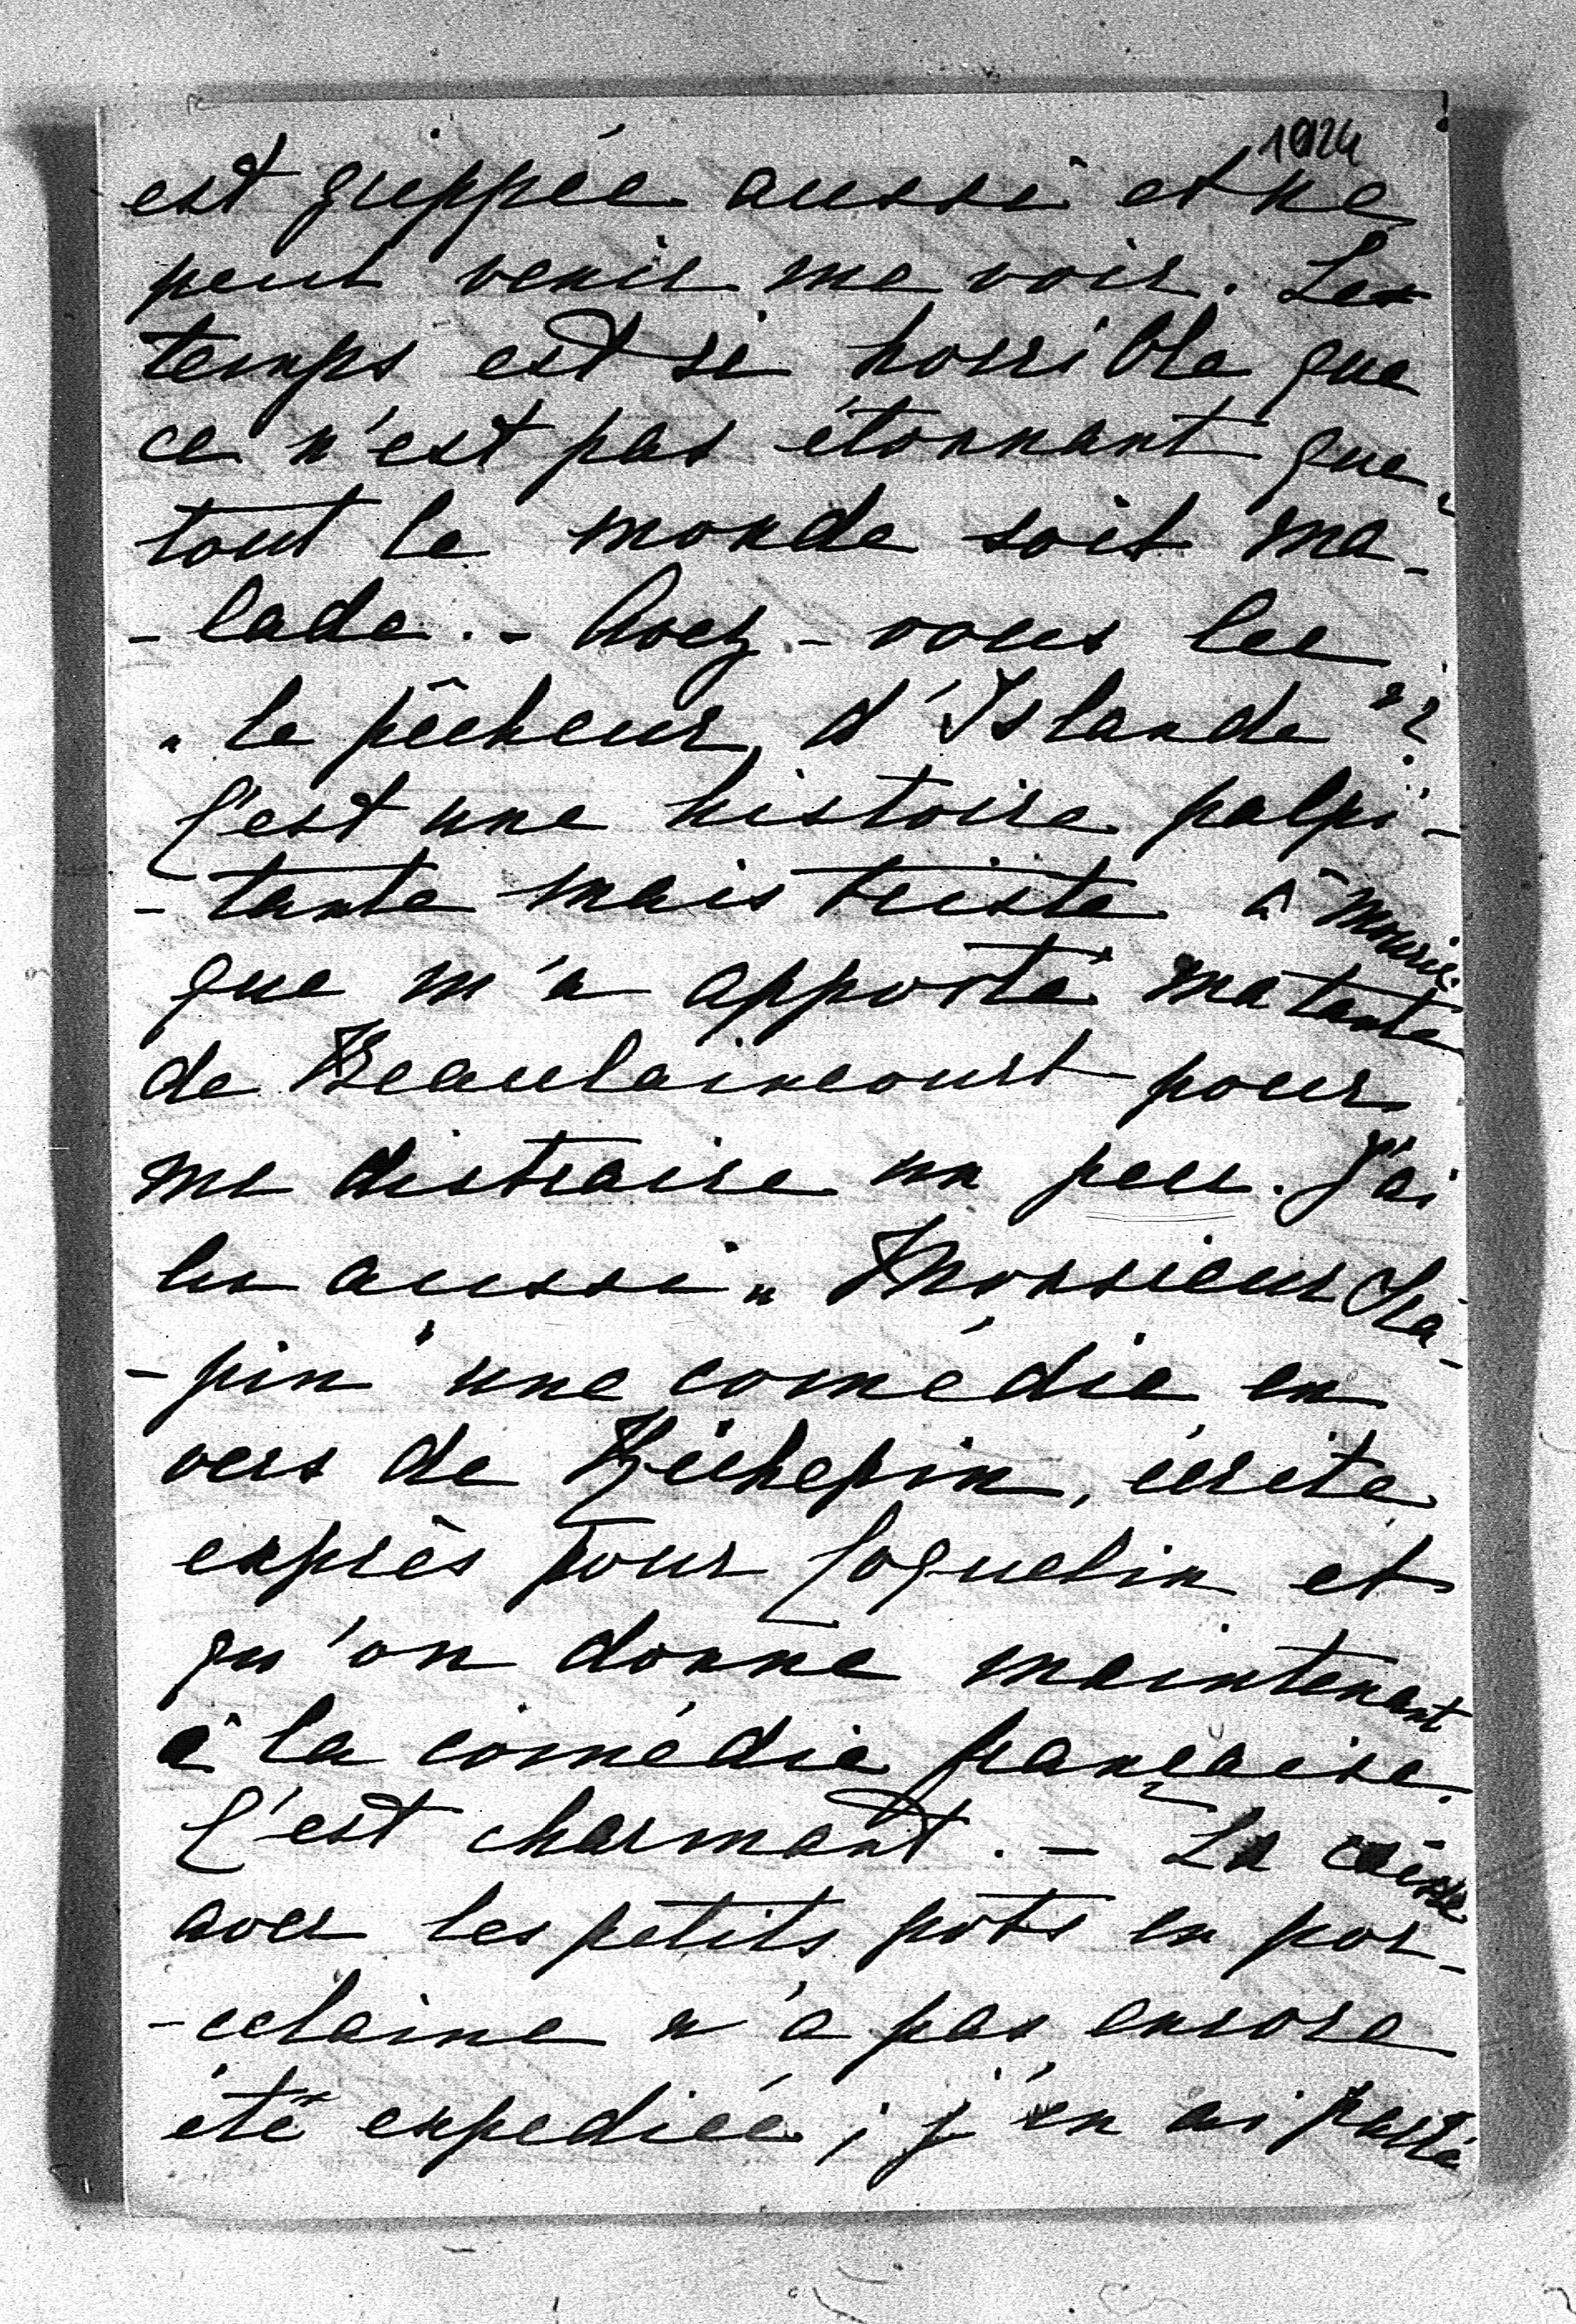 1024
est grippée aussi et ne
peut venir me voir. Le
temps est si horrible que
ce n'est pas étonnant que
tout le monde soit ma-
-lade. - Avez-vous lu
"le pêcheur d'Islande"?
C'est une histoire palpi-
-tante mais triste à mourir
que m'a apporté ma tante
de Beaulaincourt pour
me distraire un peu. J'ai
lu aussi "Monsieur Sca-
-pin" une comédie en
vers de Richepin, écrite
exprès pour Coquelin et
qu'on donne maintenant
à la comédie française.
C'est charmant. - La caisse
avec les petits pots en por-
-celaine n'a pas encore
été expediée; j'en ai parlé